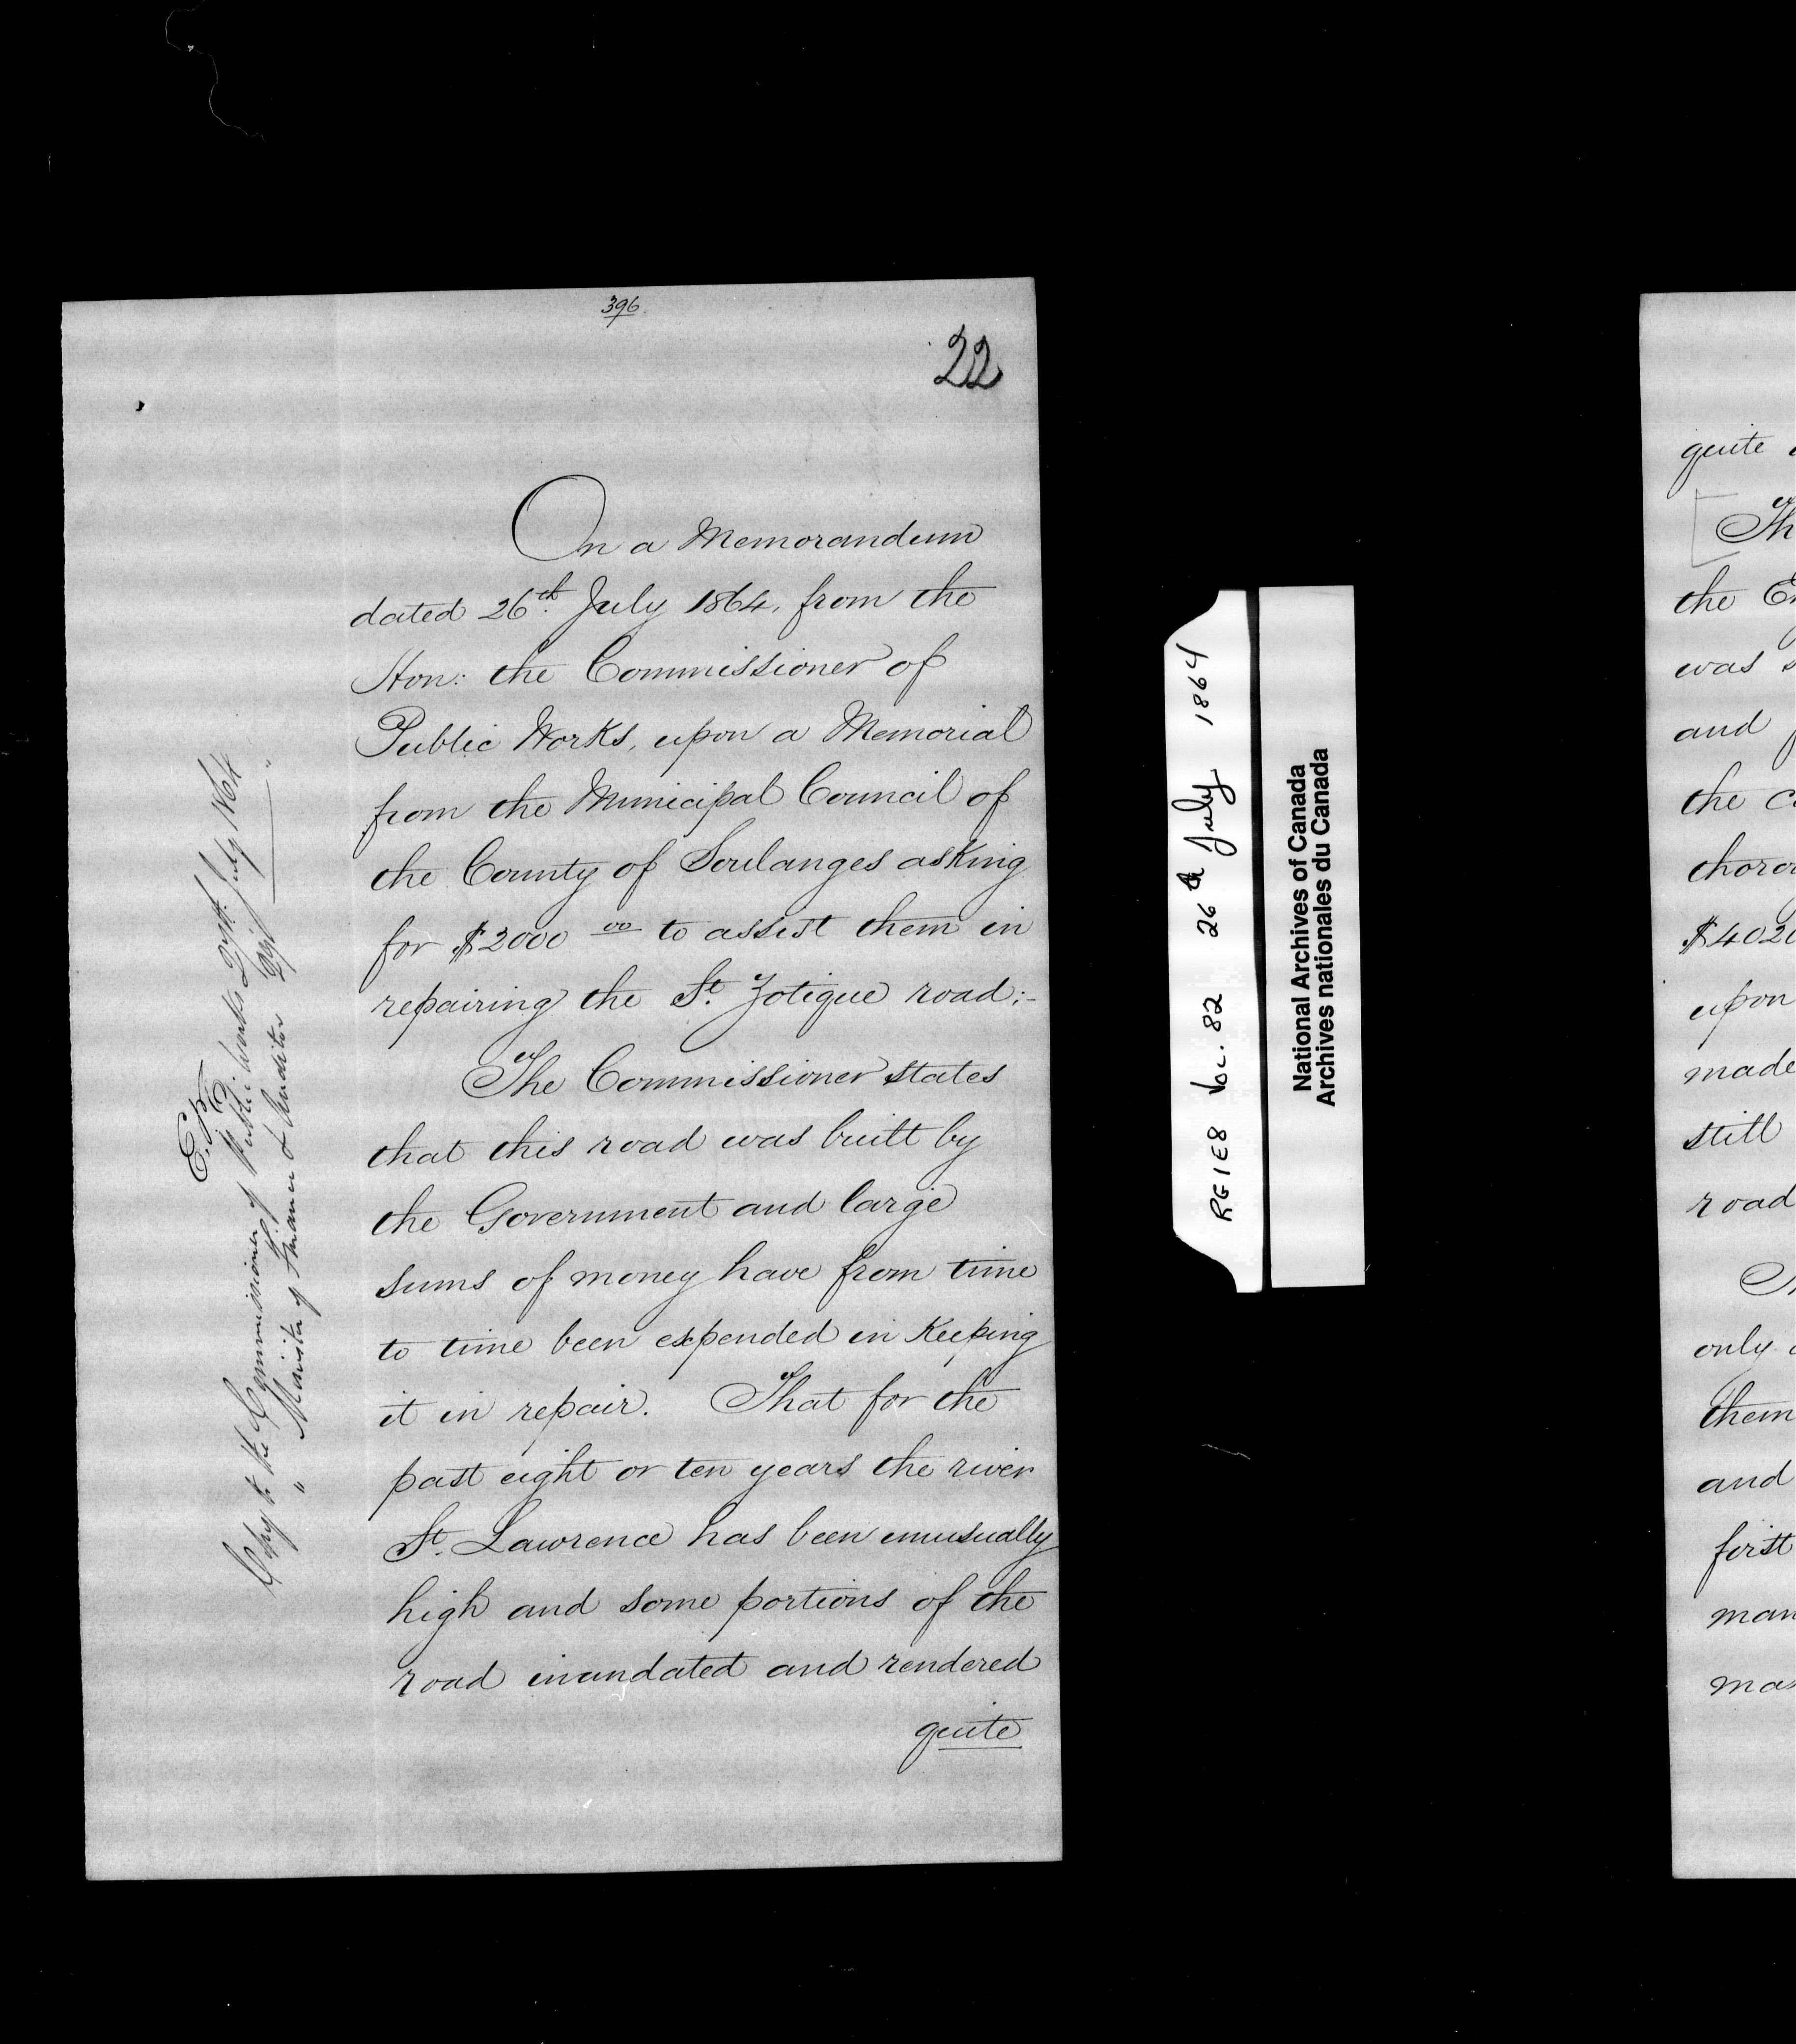 396
22
On a Memorandum
dated 26th July 1864, from the
Hon: the Commissioner of
Public Works, upon a Memorial
from the Municipal Council of
the County of Soulanges asking
for $2000 00 to assist them in
repairing the St. Zotique road:-
The Commissioner states
that this road was built by
the Government and large
sums of money have from time
to time been expended in Keeping
it in repair. That for the
past eight or ten years the river
St. Lawrence has been unusually
high and some portions of the
road inundated and rendered
quite
Copy to the Commissioner of Public Works 27th July 1864
" Minister of Finance & Auditor
RG1E8 Vol. 82 26th July 1864
National Archives of Canada
Archives nationales du Canada
quite
Th
the En
was
and
the
$402
upon
made
still
road
only
them
and
first
man